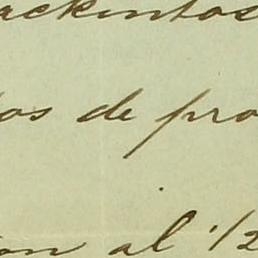 ackintos
os de pro
on al 1/2